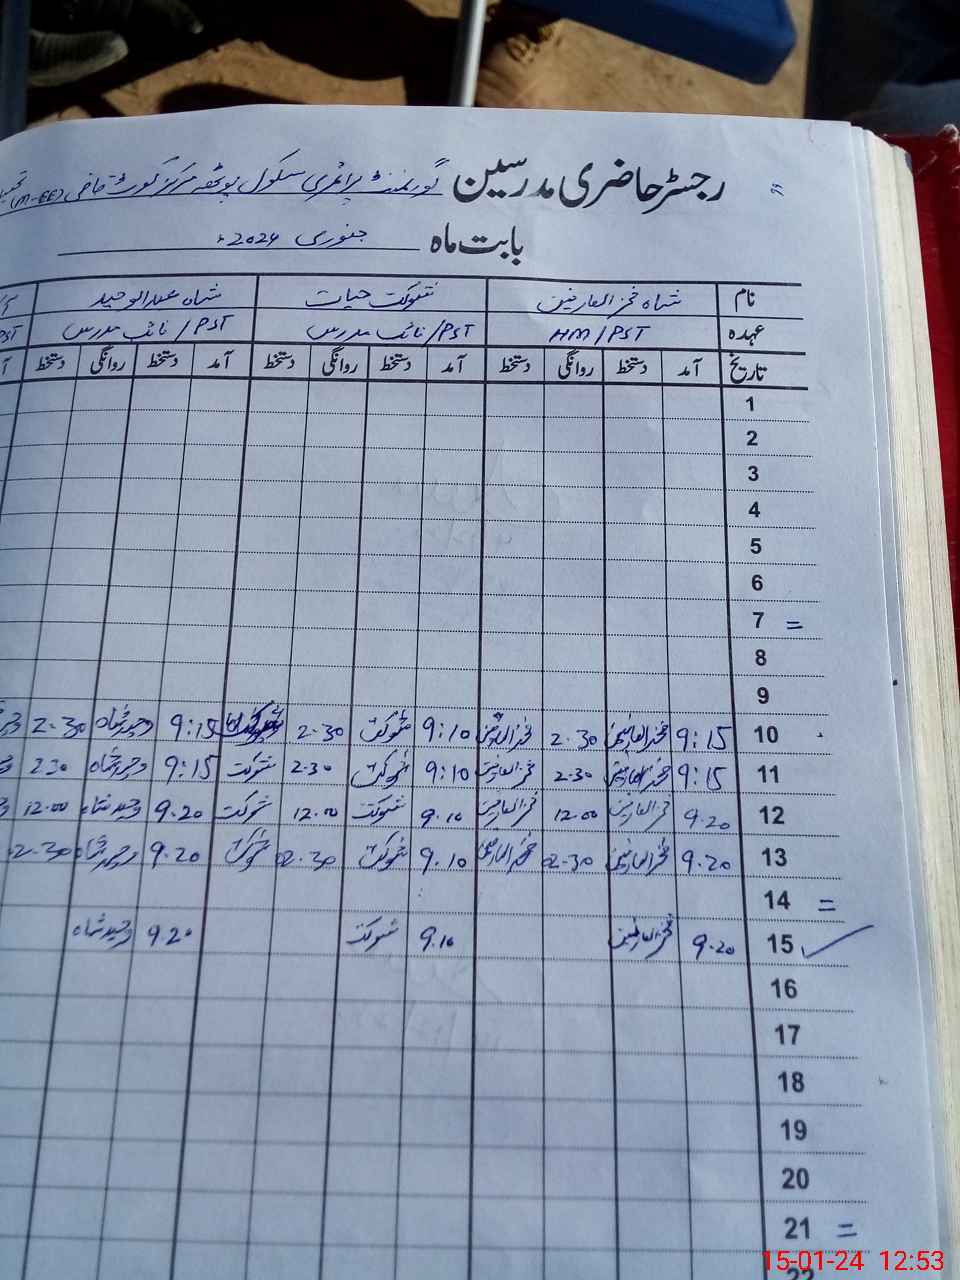 رجسٹر حاضری مدرسین گورنمنٹ پرائمری سکول پوٹھہ مرکز کوٹ قاضی (M-EE)
بابت ماہ جنوری 2024ء
نام شاہ فخر العارفین شوکت حیات شاہ عبدالوحید
عہدہ HM/PST PST/نائب مدرس PST/نائب مدرس PST
تاریخ آمد دستخط روانگی دستخط آمد دستخط روانگی دستخط آمد دستخط روانگی دستخط
1
2
3
4
5
6
7 =
8
9
10 9:15 فخر العارفین 2.30 فخر العارفین 9:10 شوکت 2.30 9:15 وحید شاہ 2.30
11 9:15 فخر العارفین 2.30 فخر العارفین 9:10 شوکت 2.30 شوکت 9:15 وحید شاہ 2.30
12 9.20 فخر العارفین 12.00 فخر العارفین 9.10 شوکت 12.00 شوکت 9.20 وحید شاہ 12.00
13 9.20 فخر العارفین 02.30 فخر العارفین 9.10 شوکت 02.30 شوکت 9.20 وحید شاہ 02.30
14 =
15 9.20 فخر العارفین 9.10 شوکت 9.20 وحید شاہ
16
17
18
19
20
21 =
22
15-01-24 12:53